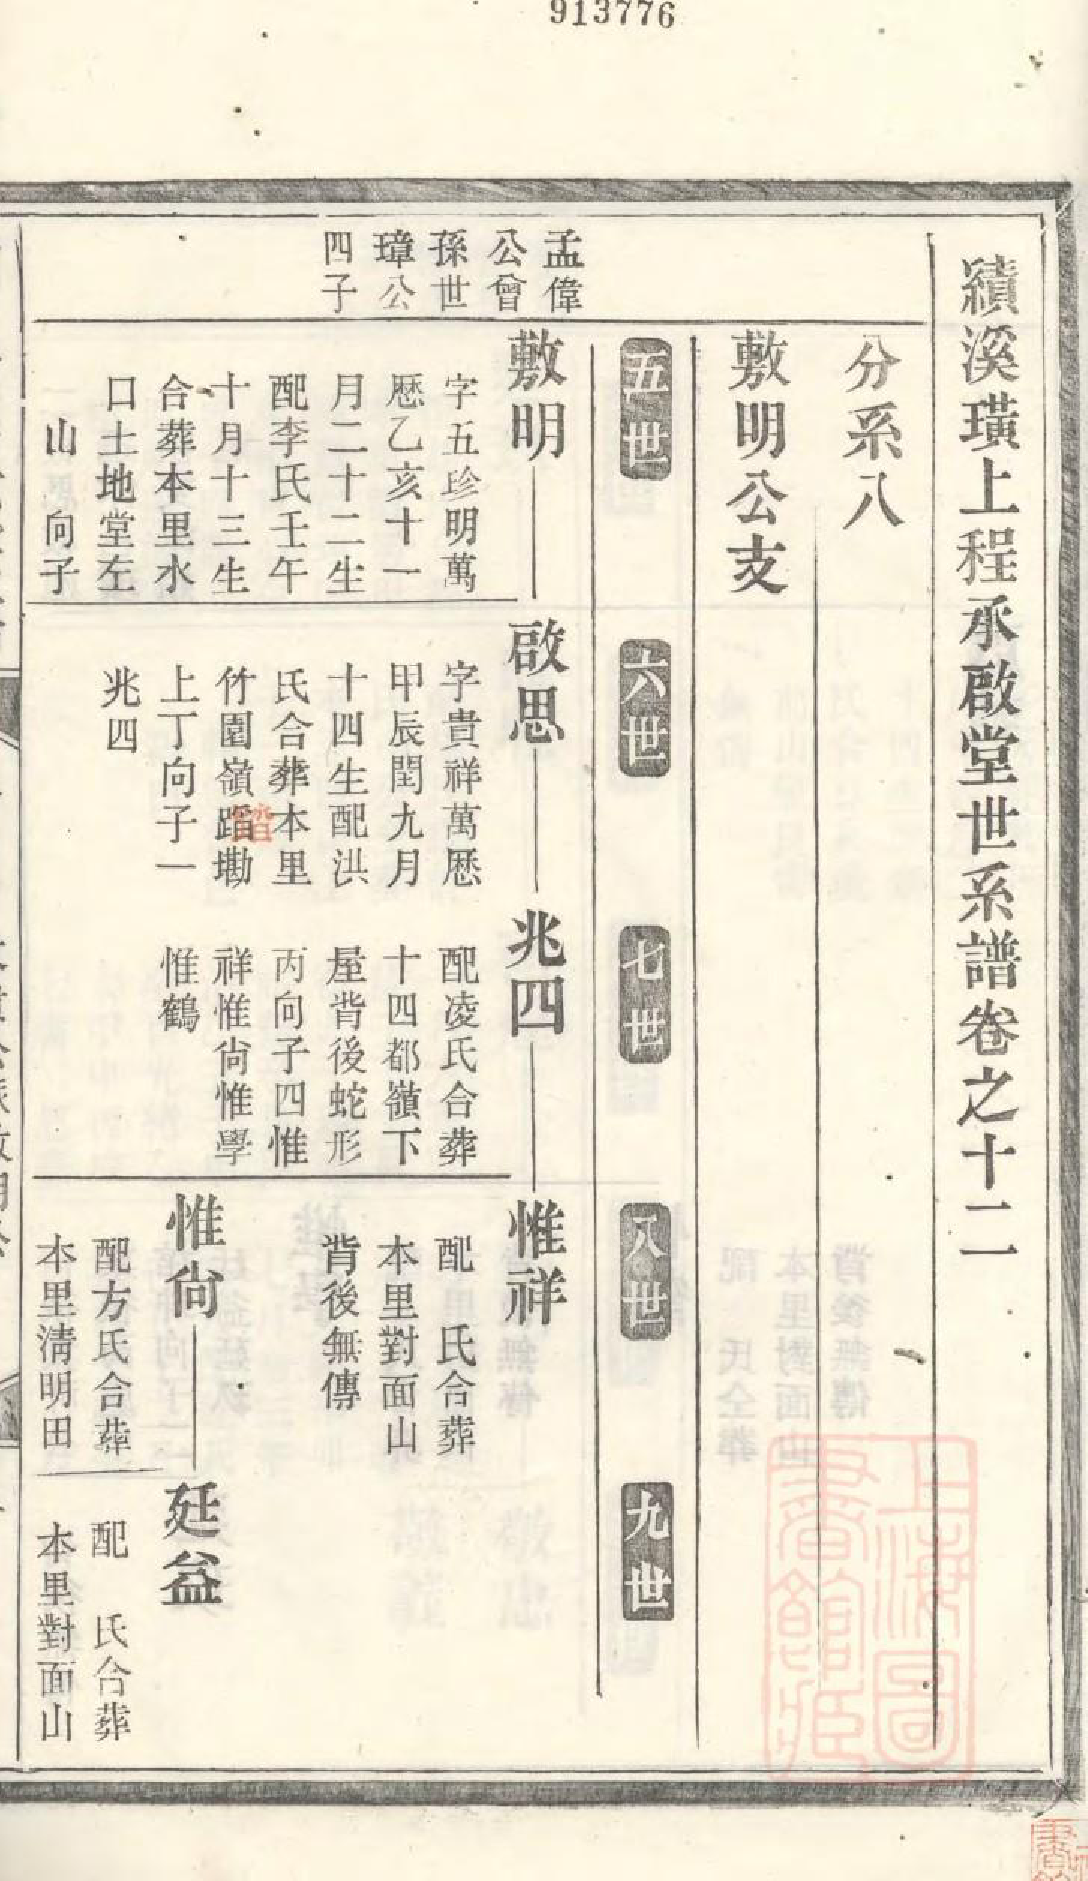 913776
績溪璜上程承啟堂世系譜卷之十二
分系八
敷明公支
五世
六世
七世
八世
九世
孟偉
公曾
孫世
璋公
四子
敷明
字五珍明萬
歷乙亥十一
月二十二生
配李氏壬午
十月十三生
合葬本里水
口土地堂左
山 向子
啟思
字貴祥萬歷
甲辰閏九月
十四生配洪
氏合葬本里
竹園嶺蹈墈
踏
上丁向子一
兆四
兆四
配凌氏合葬
十四都嶺下
屋背後蛇形
丙向子四惟
祥惟尙惟學
惟鶴
惟祥
配 氏合葬
本里對面山
背後無傳
惟尙
配方氏合葬
本里淸明田
廷益
配 氏合葬
本里對面山
上海圖
書館藏